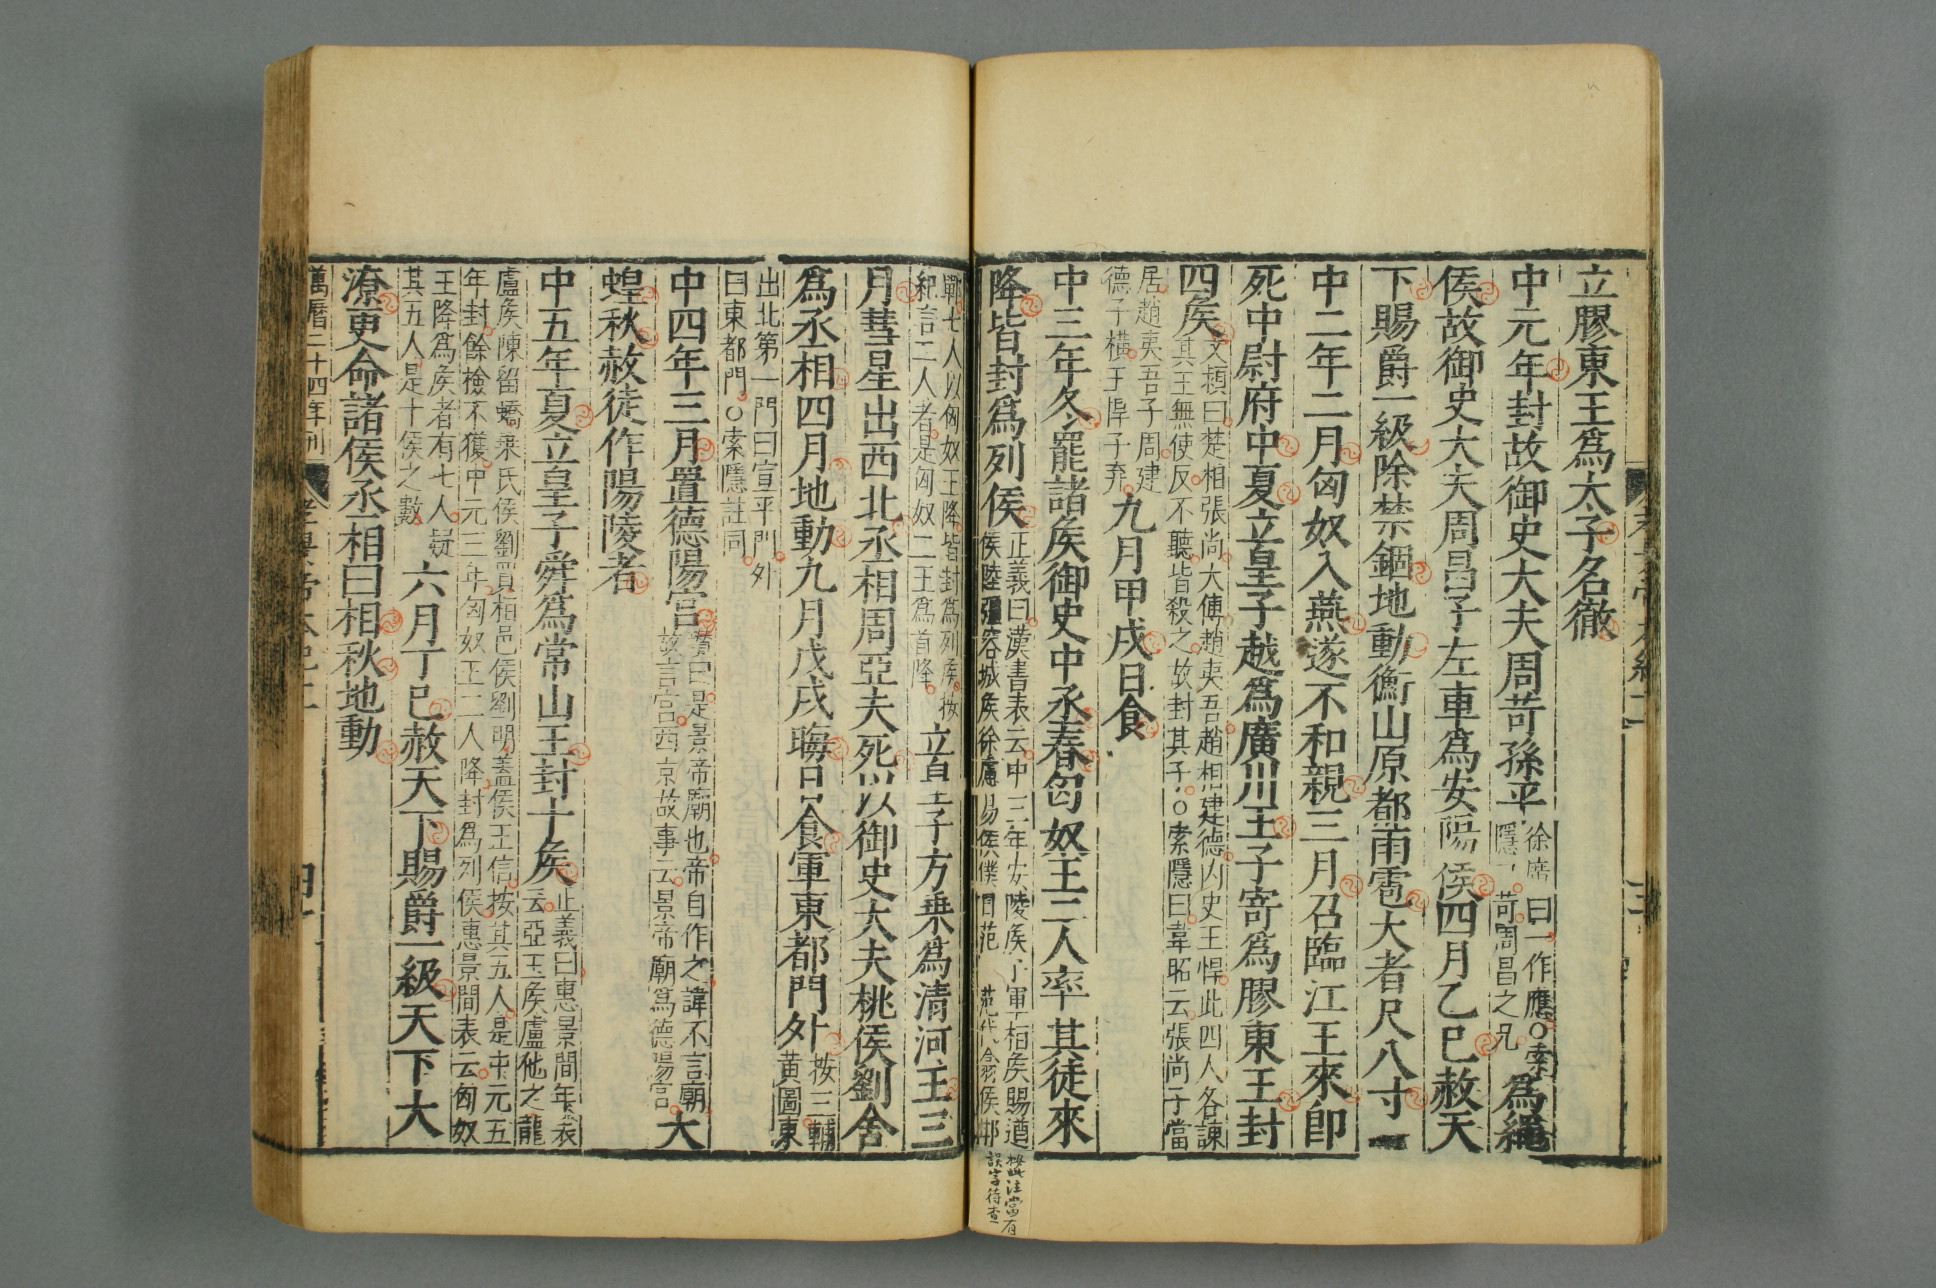 立膠東王為太子名徹
中元年封故御史大夫周苛孫平徐廣曰一作應○索隱苛周昌之兄為繩
侯故御史大夫周昌子左車為安陽侯四月乙巳赦天
下賜爵一級除禁錮地動衡山原都雨雹大者尺八寸
中二年二月匈奴入燕遂不和親三月召臨江王來即
死中尉府中夏立皇子越為廣川王子寄為膠東王封
四矦文穎曰楚相張尚大傅趙夷吾趙相建德內史王悍此四人各諫其王無使反不聽皆殺之故封其子○索隱曰韋昭云張尚子當
居趙夷吾子周建德子橫王悍子弃九月甲戌日食
中三年冬罷諸矦御史中丞春匈奴王二人率其徒來
降皆封為列侯正義曰漢書表云中三年安陵矦子軍桓矦賜遒侯陸彊容城矦徐盧易侯僕范代翕侯邯
按此注當有誤字待查
鄲七人以匈奴王降皆封為列侯按紀言二人者是匈奴二王為首降立皇子方乗為清河王三
月彗星出西北丞相周亞夫死以御史大夫桃侯劉舍
為丞相四月地動九月戊戌晦日食軍東都門外按三輔黃圖東
出北第一門曰宣平門外曰東都門○索隱註同
中四年三月置德陽宮瓚曰是景帝廟也帝自作之諱不言廟故言宮西京故事云景帝廟為德陽宮大
蝗秋赦徒作陽陵者
中五年夏立皇子舜為常山王封十矦正義曰惠景間年表云亞王矦盧他之龍
盧矦陳留蟜乗氏侯劉買桓邑侯劉明蓋侯王信按其五人是中元五年封餘檢不獲中元三年匈奴王二人降封為列侯惠景間表云匈奴
王降為矦者有七人疑其五人是十侯之數六月丁巳赦天下賜爵一級天下大
潦更命諸侯丞相曰相秋地動
萬曆二十四年刊 孝景帝本紀十一